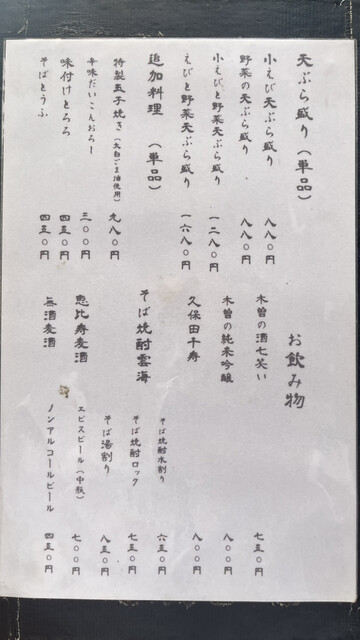 天ぷら盛り（単品）
小えび天ぷら盛り 八八〇円
野菜の天ぷら盛り 八八〇円
小えびと野菜天ぷら盛り 一二八〇円
えびと野菜天ぷら盛り 一六八〇円
追加料理（単品）
特製玉子焼き（太白ごま油使用） 九八〇円
辛味だいこんおろし 三〇〇円
味付けとろろ 四五〇円
そばとうふ 四五〇円
お飲み物
木曽の酒七笑い 七五〇円
木曽の純米吟醸 八〇〇円
久保田千寿 八〇〇円
そば焼酎雲海
そば焼酎水割り 六五〇円
そば焼酎ロック 七五〇円
そば湯割り 八五〇円
恵比寿麦酒 エビスビール（中瓶） 七〇〇円
無酒麦酒 ノンアルコールビール 四五〇円